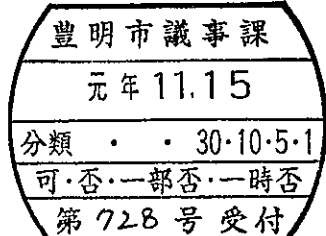 豊明市議事課
元年 11.15
分類 ・ ・ 30・10・5・1
可・否・一部否・一時否
第 728 号 受付